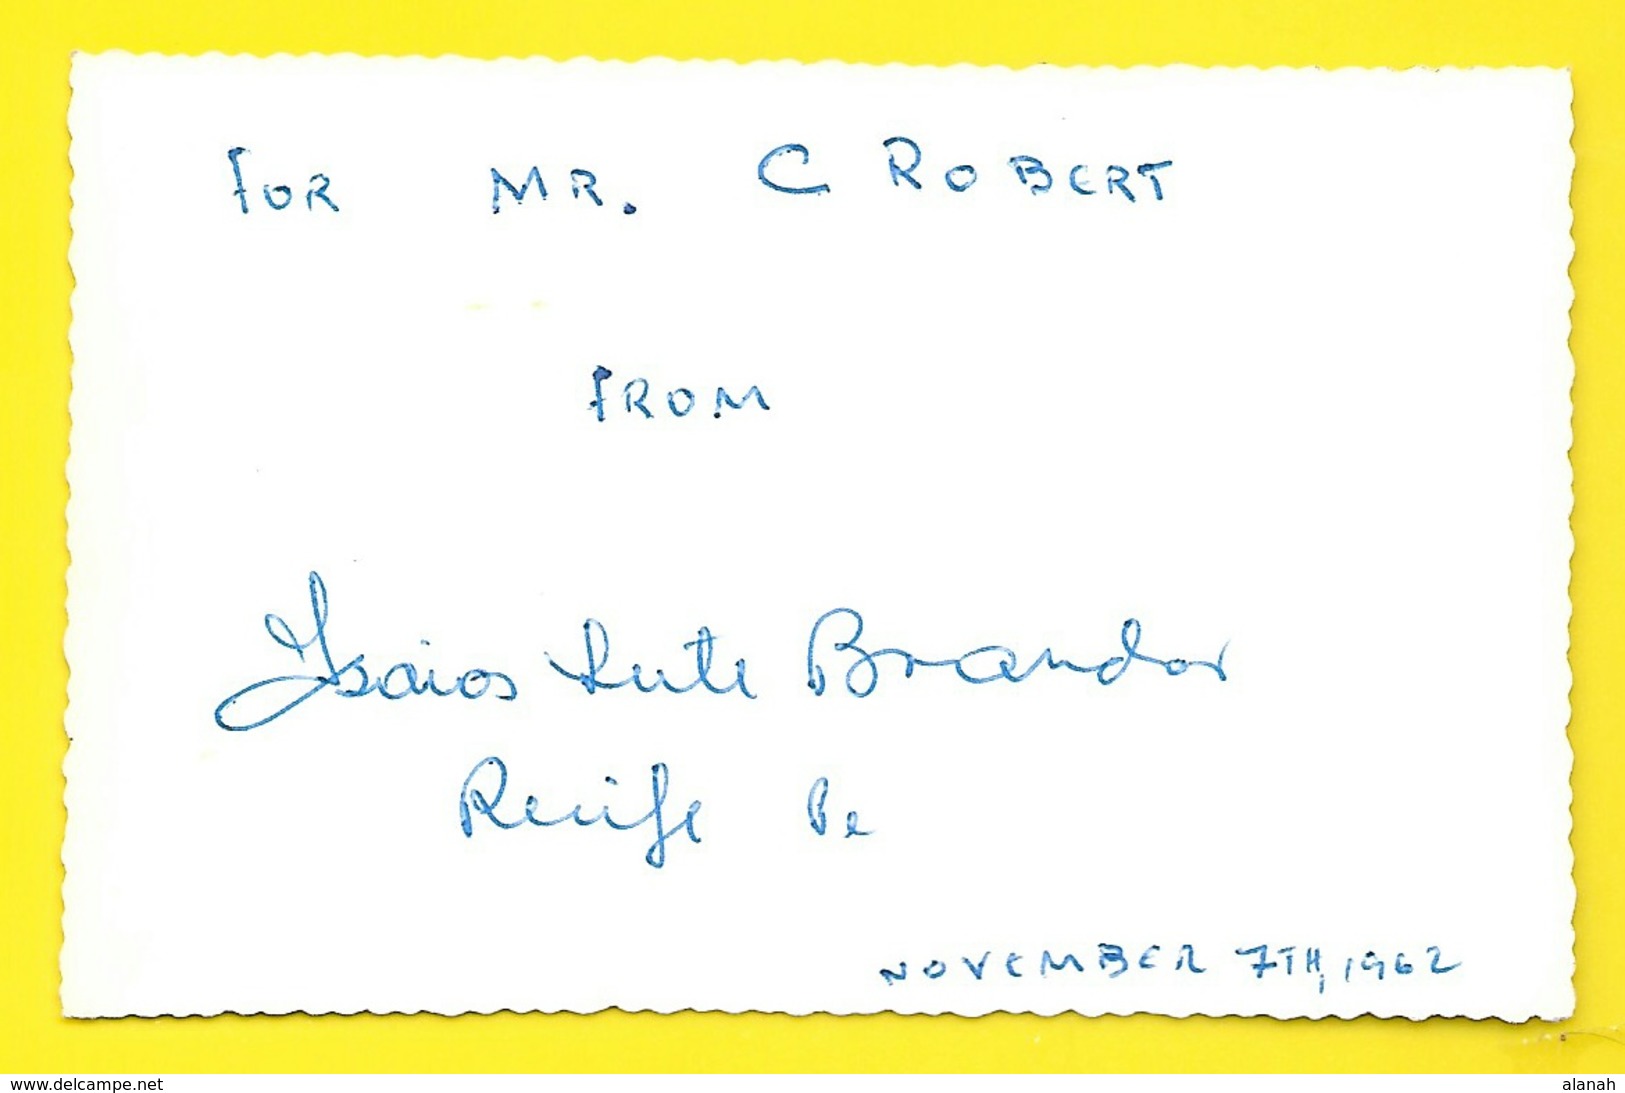 FOR MR. C ROBERT
FROM
Isaias Leite Brandar
Recife Pe
NOVEMBER 7TH, 1962
www.delcampe.net
alanah